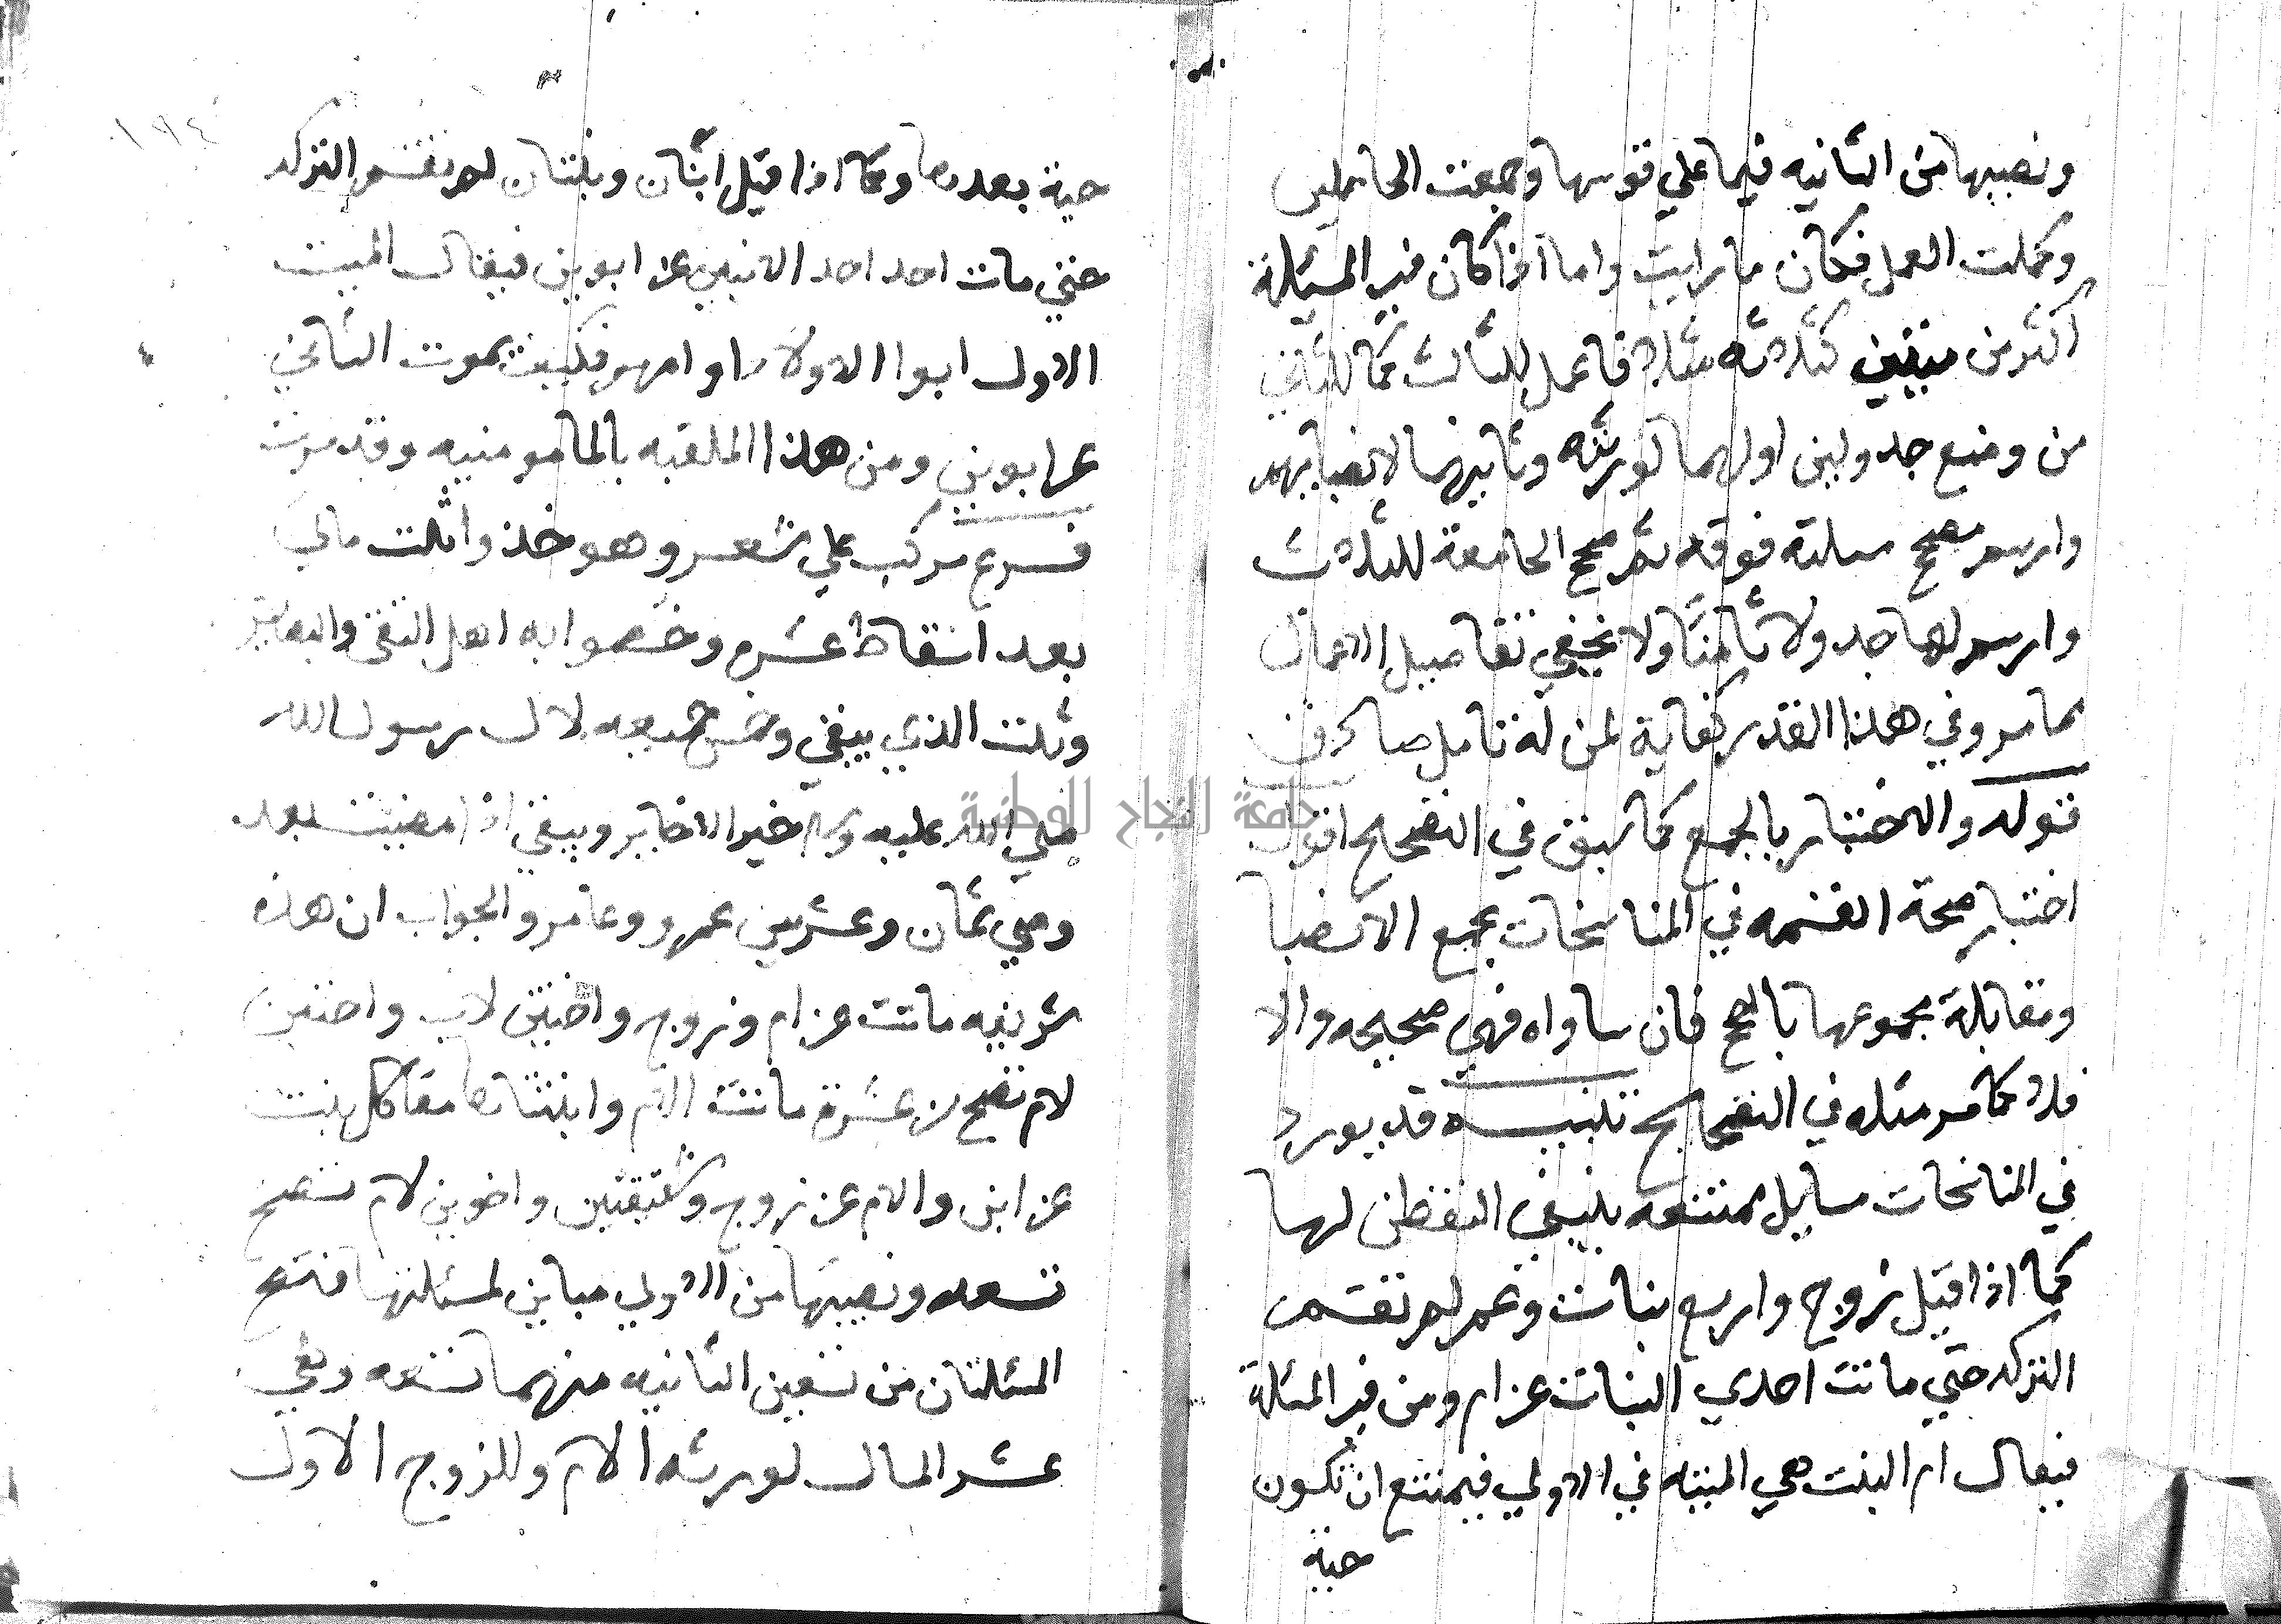 ونصيبها من الثانيه فيما علي قوسها وجمعت الحاصلين
وكملت العمل فكان ما رايت واما اذا كان في المسئلة
اكثر من ميتين كثلاثه مثلا فاعمل للثالث كما للثاني
من وضع جدولين اولهما لورثته وثانيهما لانصبايهم
وارسم مصحح مسلته فوقه ثم صحح الجامعة للثلاث
وارسم لها جدولا ثامنا ولا يخفي تفاصيل الاعمال
مما مر وفي هذا القدر كفاية لمن له تامل صادق
قوله والاختبار بالجمع كما سبق في التصحيح اقول
اختبار صحة القسمه في المناسخات بجمع الانصبا
ومقابلة مجموعها بالمصحح فان ساواه فهي صحيحه والا
فلا كما مر مثله في التصحيح تنبيه قد يورد
في المناسخات مسايل ممتنعه ينبغي التفطن لها
كما اذا قيل زوج واربع بنات وعم لم تقسم
التركه حتي ماتت احدي البنات عن ام ومن في المسئلة
فيقال ام البنت هي الميته في الاولي فيمتنع ان تكون
حية
١٩٤
حية بعدها وكما اذا قيل ابنان وبنتان لم تقسم التركه
حتي مات احد احد الابنين عن ابوين فيقال الميت
الاول ابوا الاولاد او امهم فكيف يموت الثاني
عن ابوين ومن هذا الملقبه بالمامونيه وقد مرت
فرع مركب علي شعر وهو خذوا ثلث مالي
بعد اسقاط عشره وخصوا به اهل التقى والبصاير
وثلث الذي يبقي وخمس جميعه لال رسول الله
صلي الله عليه وسلم خير الاخاير ويبقي اذا مضيت بعد
وهي ثمان وعشرين عمرو وعامر والجواب ان هذه
شريفيه ماتت عن ام وزوج واختين لاب واختين
لام تصح من عشرة ماتت الام وابنتاها معا كل بنت
عن ابن والام عن زوج وشقيقتين واخوين لام تصح
تسعه ونصيبها من الاولي مباين لمسئلتها فتصح
المسئلتان من تسعين الثانيه منهما تسعه وهي
عشر المال لورثه الام وللزوج الاول
جامعة النجاح الوطنية